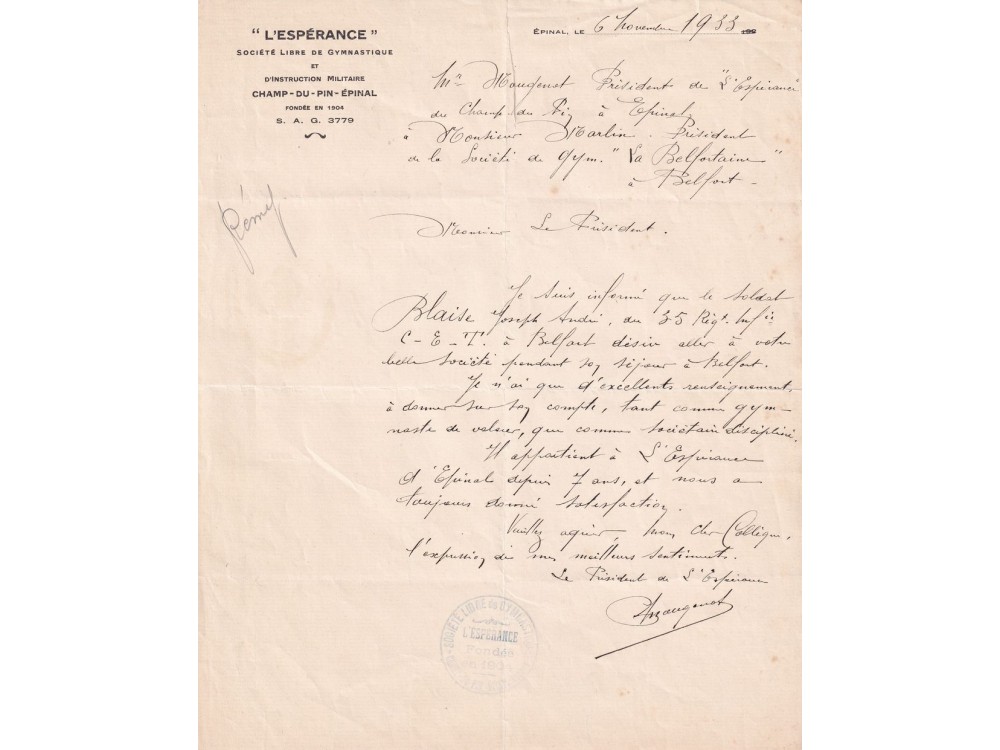 “ L'ESPÉRANCE ”
SOCIÉTÉ LIBRE DE GYMNASTIQUE
ET
D'INSTRUCTION MILITAIRE
CHAMP-DU-PIN-ÉPINAL
FONDÉE EN 1904
S. A. G. 3779
ÉPINAL, LE 6 Novembre 1933
Mr Mougenot Président de "L'Espérance"
du Champ du Pin à Epinal
à Monsieur Marlin. Président
de la Société de Gym. "La Belfortaine"
à Belfort -
Rémy
Monsieur Le Président.
Je suis informé que le soldat
Blaise Joseph André, du 35 Régt. Infie
C-E-T. à Belfort désire aller à votre
belle Société pendant son séjour à Belfort.
Je n'ai que d'excellents renseignements
à donner sur son compte, tant comme gym-
naste de valeur, que comme sociétaire discipliné.
Il appartient à L'Espérance
d'Epinal depuis 7 ans, et nous a
toujours donné satisfaction.
Veuillez agréer, mon cher Collègue,
l'expression de mes meilleurs sentiments.
Le Président de L'Espérance
Mougenot
SOCIÉTÉ LIBRE DE GYMNASTIQUE
L'ESPÉRANCE
Fondée